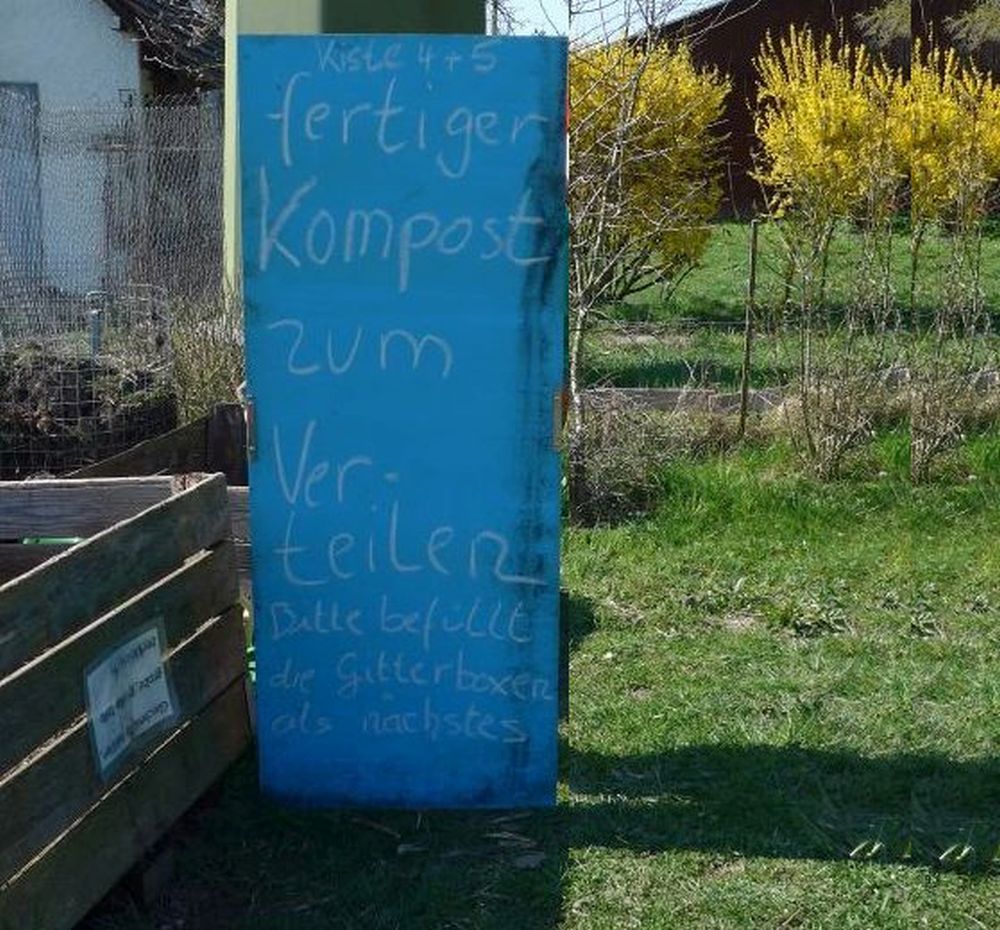 Kiste 4 + 5
fertiger
Kompost
zum
Ver-
teilen
Bitte befüllt
die Gitterboxen
als nächstes